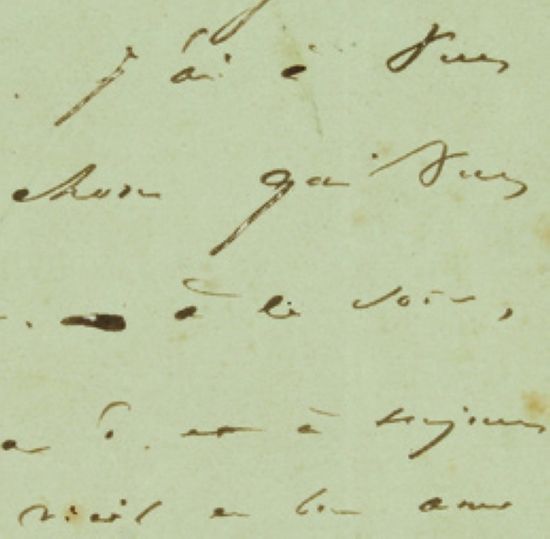 j'ai à vous
chose qui vous
à le voir,
et à toujours
vieil et bon ami